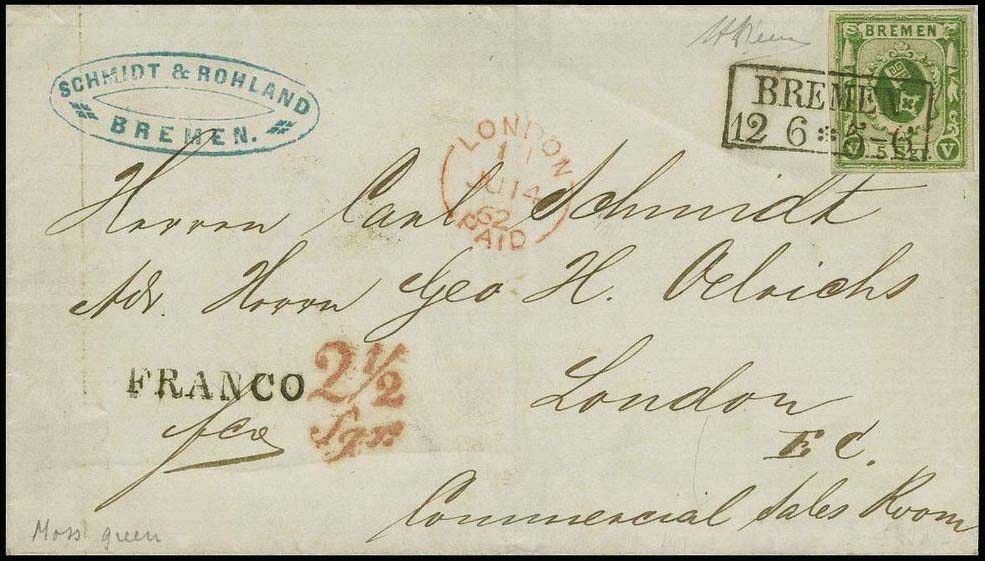 BREMEN
5 Sgr.
SCHMIDT & ROHLAND
BREMEN.
BREMEN
12 6 5-6
LONDON
JU 14
62
PAID
Herren Carl Schmidt
Adr. Herrn Geo H. Oelrichs
London
E C.
Commercial Sales Room
FRANCO
2 1/2
Sgr
fco
Moss green